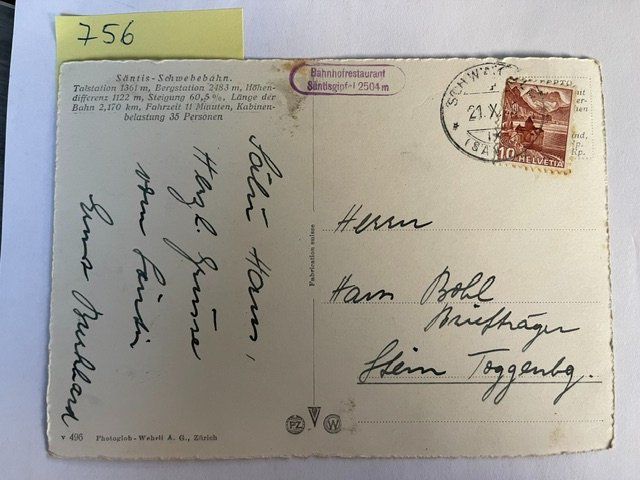 756
Säntis-Schwebebahn.
Talstation 1361 m, Bergstation 2483 m, Höhen-
differenz 1122 m, Steigung 60,5 %, Länge der
Bahn 2,170 km, Fahrzeit 11 Minuten, Kabinen-
belastung 35 Personen
Bahnhofrestaurant
Säntisgipfel 2504 m
21.X.
10 HELVETIA
Salü Hans,
Herzl. Grüsse
vom Säntis
Ernst Burkhard
Fabrication suisse
Herrn
Hans Bohl
Briefträger
Stein Toggenbg.
v 496 Photoglob-Wehrli A. G., Zürich
PZ W